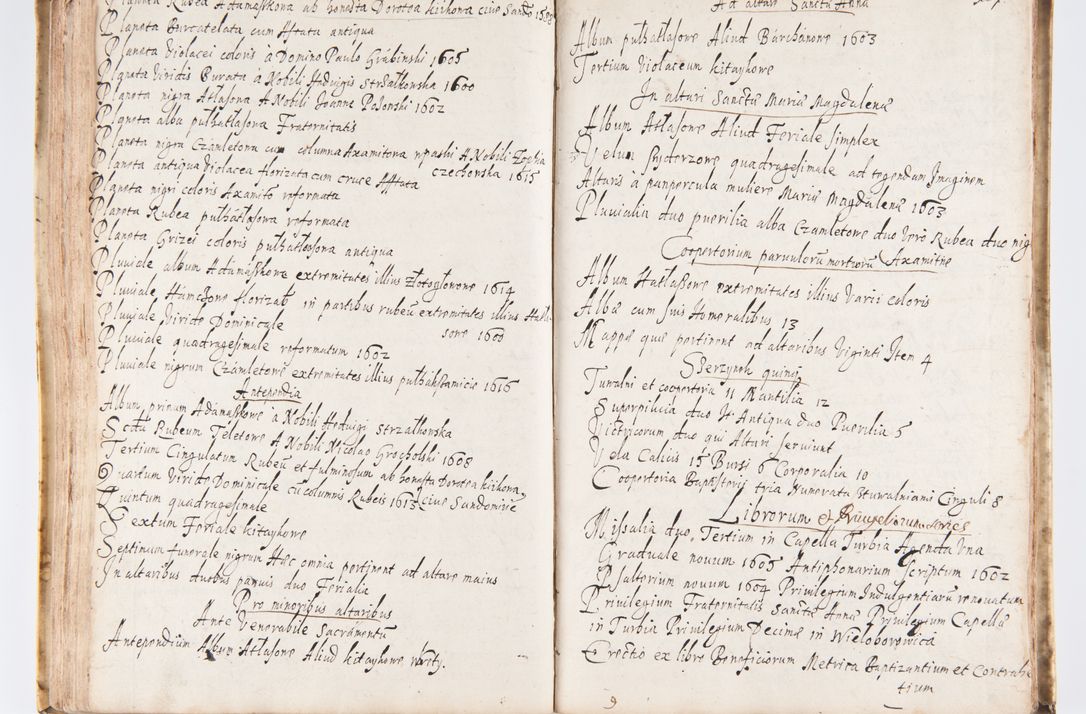 Planeta Rubea Adamaskowa ab honesta Dorotea kirkowa cive Sando 1598
Planeta Burcatelata cum Astata antiqua
Planeta Violacei coloris à Domino Paulo Grabinski 1605
Planeta Viridis Burcata à Nobili Hedvigis Strzałkowska 1600
Planeta nigra Atłasowa A Nobili Joanne Pasowski 1602
Planeta alba pułhatłasowa Fraternitatis
Planeta nigra Czamletowa cum columna Axamitowa A Nobili Zophia
Planeta antiqua Violacea florizata cum cruce Astata czechowska 1615
Planeta nigri coloris Axamito reformata
Planeta Rubea pułhatłasowa reformata
Planeta Grizei coloris pułhatłasowa antiqua
Pluviale album Adamaskowe extremitates illius Złotogłowowe 1614
Pluviale florizat in partibus rubeũ extremitates illius Hatła-
Pluviale Viride Dominicale sowe 1600
Pluviale quadragesimale reformatum 1602
Pluviale nigrum Czamletowe extremitates illius 1616
Antependia
Album primum Adamaskowe à Nobili Hedvigi Strzalkowska
Scdũ Rubeum Teletowe A Nobili Nicolao Grocholski 1608
Tertium Cingulatum Rubeũ et fulminosum ab honesta Dorotea kirkowa
Quartum Viride Dominicale cũ columnis Rubeis 1613 cive Sandomirie
Quintum quadragesimale
Sextum Feriale kitaykowe
Septimum funerale nigrum Haec omnia pertinent ad altare maius
In altaribus duobus parvis duo Ferialia
Pro minoribus altaribus
Ante Venerabile Sacramentũ
Antependium Album Atłasowe Aliud kitaykowe
Ad altare Sancta Anna
Album pułhatłasowe Aliud Barchanowe 1603
Tertium Violaceum kitaykowe
In altari Sancta Maria Magdalena
Album Atłasowe Aliud Feriale simplex
Velum quadragesimale ad tegendam Imaginem
Altaris à paupercula muliere Maria Magdalena 1603
Pluvialia duo puerilia alba Czamletowe duo Vero Rubea duo nig
Coopertorium parvulorũ mortuorũ Axamitne
Album Hatłassowe extremitates illius Varii coloris
Albae cum suis Homeralibus 13
Mappae quae pertinent ad altaribus Viginti Item 4
Sierzynek quinq
Tuwalni et coopertoria 11 Mantilia 12
Superpilicia duo It Antiqua duo Puerilia 5
Victricorum duo qui Altari serviunt
Vela Calicis 15 Bursi 6 Corporalia 10
Coopertoria Baptisterij tria Humerata Cinguli 8
Librorum et series
Missalia duo, Tertium in Capella Turbia Agenda Una
Graduale novum 1605 Antiphonarium scriptum 1602
Psalterium novum 1604 Privilegium Indulgentiarũ renovatum
Privilegium Fraternitatis Sancta Anna Privilegium Capella
in Turbia Privilegium Decimae in Wieloborowica
Erectio ex libro Beneficiorum Metrica Baptizantium et Contrahe
tium
9